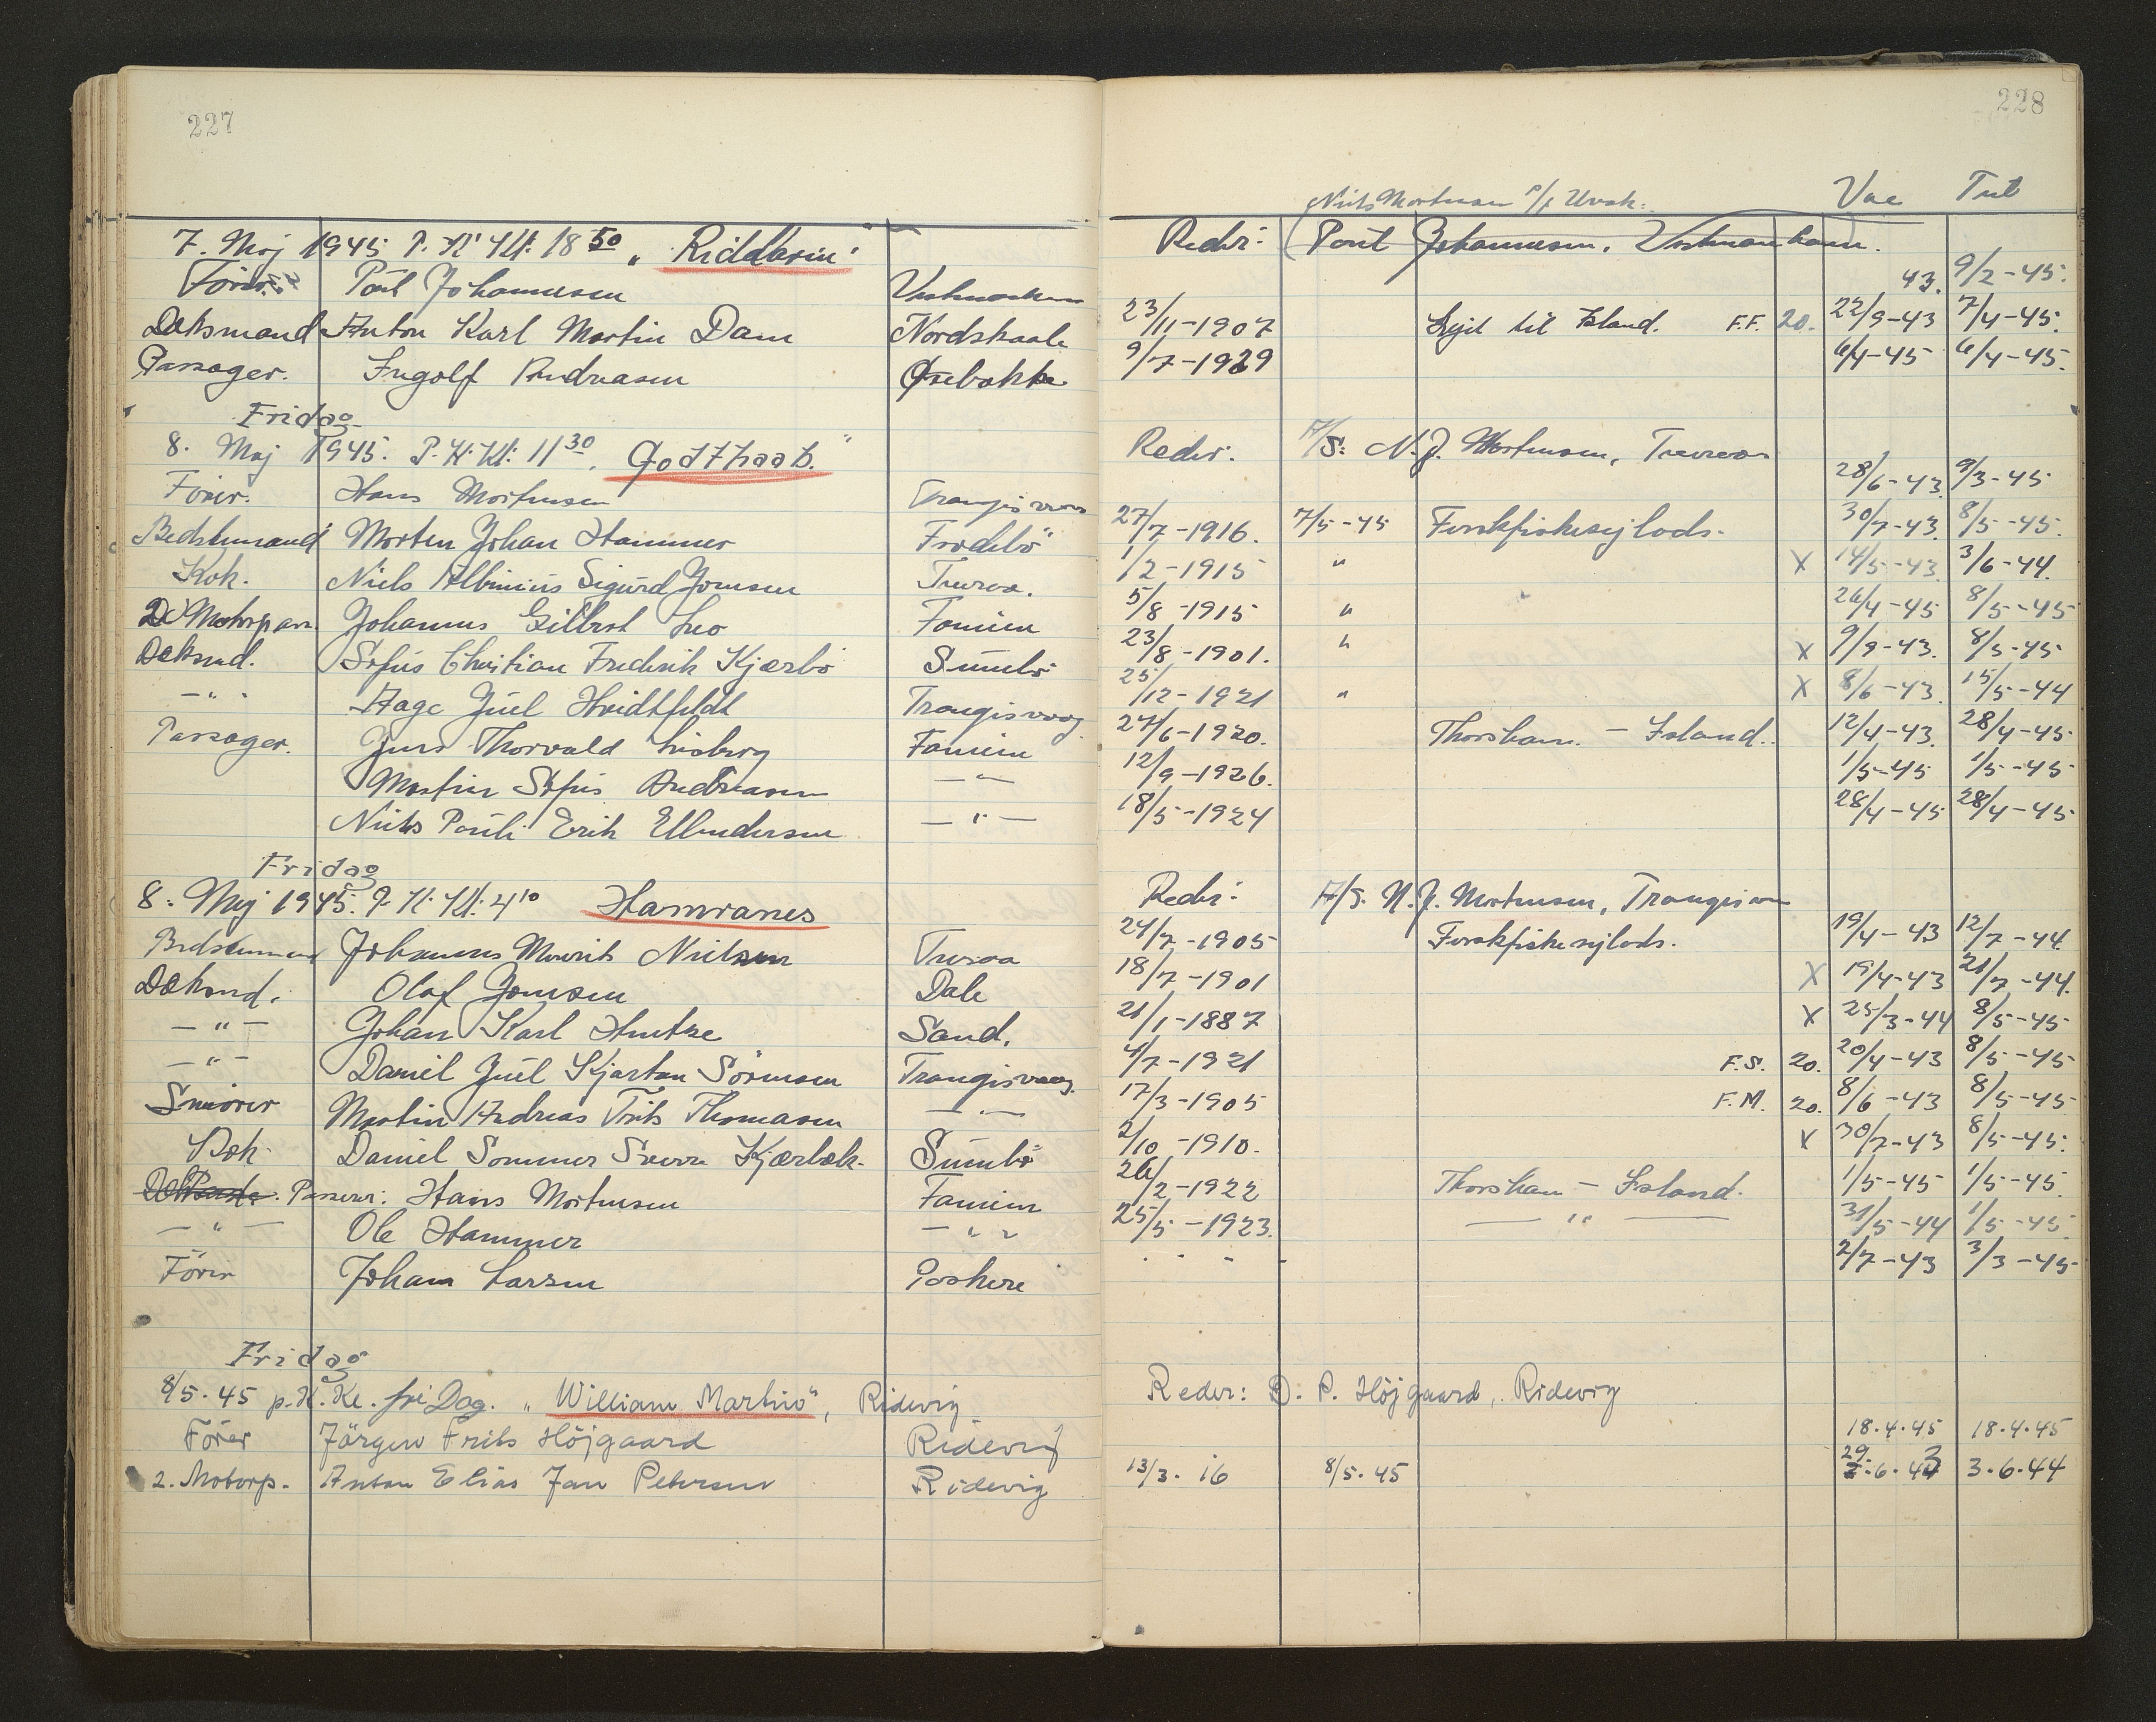 227
7. Maj 1945 P. K. Kl. 18 50 „Riddarin"
Förer. Poul Johannesen
Dæksmand Anton Karl Martin Dam Nordskaale
Passager. Ingolf Andreasen
Fridag
8. Maj 1945. P. K. Kl: 11 30. Godthaab."
Förer. Hans Mortensen Trangisvaag
Bedstemand Morten Johan Hammer Frodebö
Kok. Niels Albinius Sigurd Joensen Tveraa.
2 Motorpass. Johannes Gilbert Famien
Dæksmd. Sofus Christian Frederik Kjærbö Sumbö
-"- Aage Juel Hvidtfeldt Trangisvaag
Passager. Jens Thorvald Lisberg Famien
Martin Sofus Andreasen -"-
Niels Pouli Erik Ellendersen -"-
Fridag
8. Maj 1945. P. K. Kl: 4 10 Hamranes
Bedstemand Johannes Mourits Nielsen Tveraa
Dæksmd. Olaf Joensen Dale
-"- Johan Karl Hentze Sand.
-"- Daniel Juel Kjartan Sörensen Trangisvaag.
Smörer Martin Andreas Frits Thomasen -"-
Kok. Daniel Sommer Sverre Kjærbæk. Sumbö
Passener: Hans Mortensen Famien
-"- Ole Hammer -"-
Förer Johan Larsen Poskere
Fridag
8/5.45 p. K. Kl. fri Dag. „William Martin", Ridevig
Förer Jörgen Frits Höjgaard Ridevig
2. Motorp. Anton Elias Jan Petersen Ridevig
228
Niels Mortensen Vac Tub
Reder: Poul Johannesen, Vestmanhavn.
43. 9/2-45.
23/11-1907 Sejl til Island. F.F. 20. 22/9-43 7/4-45.
9/7-1929 6/4-45 6/4-45.
Reder. A/S: N. J. Mortensen, Tveraa
28/6-43. 9/3-45
27/7-1916. 7/5-45 Ferskfiskesejlads. 30/7-43. 8/5-45.
1/2-1915 " X 14/5-43 3/6-44.
5/8-1915 " 26/4-45 8/5-45
23/8-1901. " X 9/9-43. 8/5-45
25/12-1921 " X 8/6-43. 15/5-44
27/6-1920. Thorshavn. - Island. 12/4-43. 28/4-45
12/9-1926. 1/5-45 1/5-45
18/5-1924 28/4-45 28/4-45
Reder: A/S. N. J. Mortensen, Trangisvaag
24/7-1905 Ferskfiskesejlads. 19/4-43 12/7-44.
18/7-1901 X 19/4-43 21/7-44.
21/1-1887 X 25/3-44 8/5-45
4/7-1921 F.S. 20. 20/4-43 8/5-45
17/3-1905 F.M. 20. 8/6-43 8/5-45
2/10-1910. X 30/7-43 8/5-45.
26/2-1922 Thorshavn - Island. 1/5-45 1/5-45
25/5-1923. -"- 31/5-44 1/5-45
- - - 2/7-43 3/3-45
Reder: D. P. Höjgaard, Ridevig
18.4.45 18.4.45
13/3.16 8/5.45 29.6.43 3.6.44